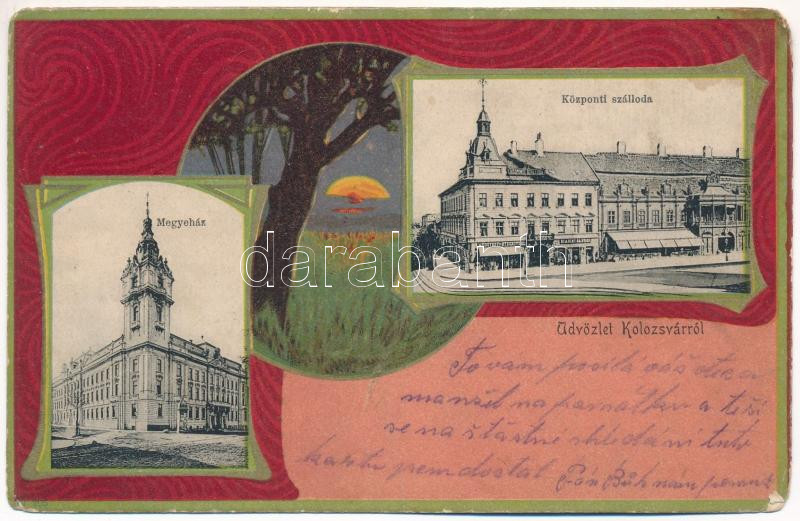 Központi szálloda
Megyeház
darabanth
Üdvözlet Kolozsvárról
To vam posila váš
manžel na pamatku a teší
se na štastné shledání tuto
kartu sem dostal Pán Bůh